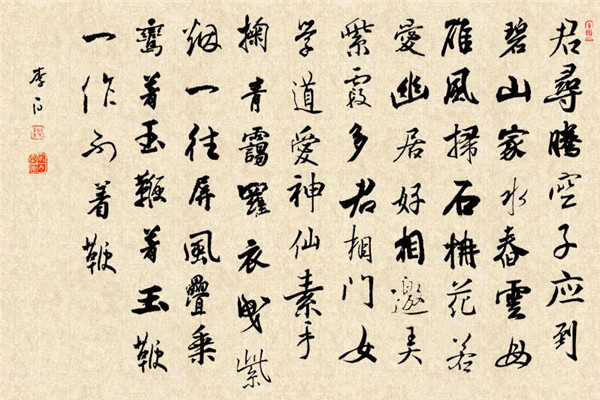 君尋騰空子应到
碧山家水舂雲母
碓風掃石楠花若
愛幽居好相邀弄
紫霞多君相門女
学道愛神仙素手
掬青靄羅衣曳紫
烟一往屏風疊乘
鸾着玉鞭着玉鞭
一作不著鞭
李白